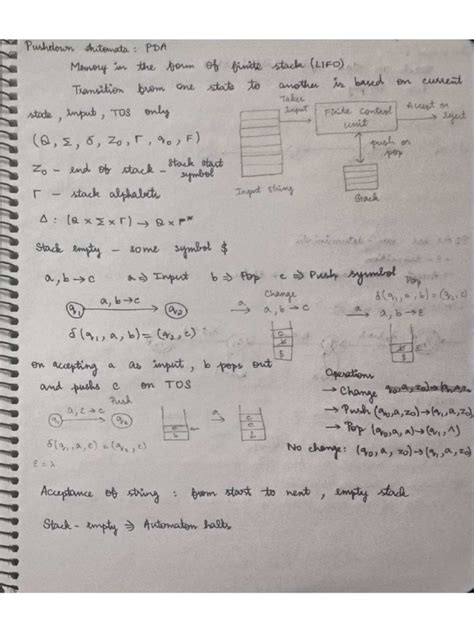 Pushdown Automata : PDA
Memory in the form of finite stack (LIFO)
Transition from one state to another is based on current
state, input, TOS only
(Q, Σ, δ, Z₀, Γ, q₀, F)
Z₀ - end of stack - Stack start symbol
Γ - stack alphabets
Δ : (Q × Σ × Γ) → Q × Γ*
Takes Input
Finite Control unit
Accept or reject
push or pop
Input string
Stack
Stack empty - some symbol $
a, b → c   a ⇒ Input   b ⇒ Pop   c ⇒ Push symbol
q₁   a, b → c   q₂
δ(q₁, a, b) = (q₂, c)
Change
a   a, b → c
Pop
δ(q₁, a, b) = (q₂, ε)
a   a, b → ε
on accepting a as input, b pops out
and pushes c on TOS
Push
q₁   a, ε → c   q₂
a
δ(q₁, a, ε) = (q₂, c)
ε = λ
Operations
→ Change
→ Push (q₀, a, z₀) → (q₁,
→ Pop (q₀, a, a) → (q₁, ∧)
No change : (q₀, a, z₀) → (q₁, z₀)
Acceptance of string : from start to next, empty stack
Stack - empty ⇒ Automaton halts